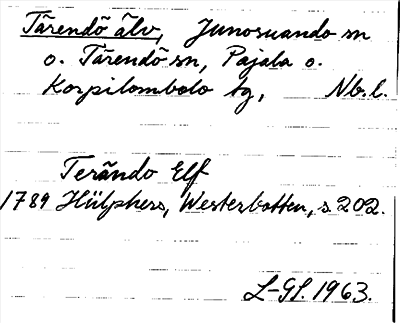 Tärendö älv, Junosuando sn
o. Tärendö sn, Pajala o.
Korpilombolo tg, Nb.l.
Terändo Elf
1789 Hülphers, Westerbotten, s 202.
L-Gl. 1963.